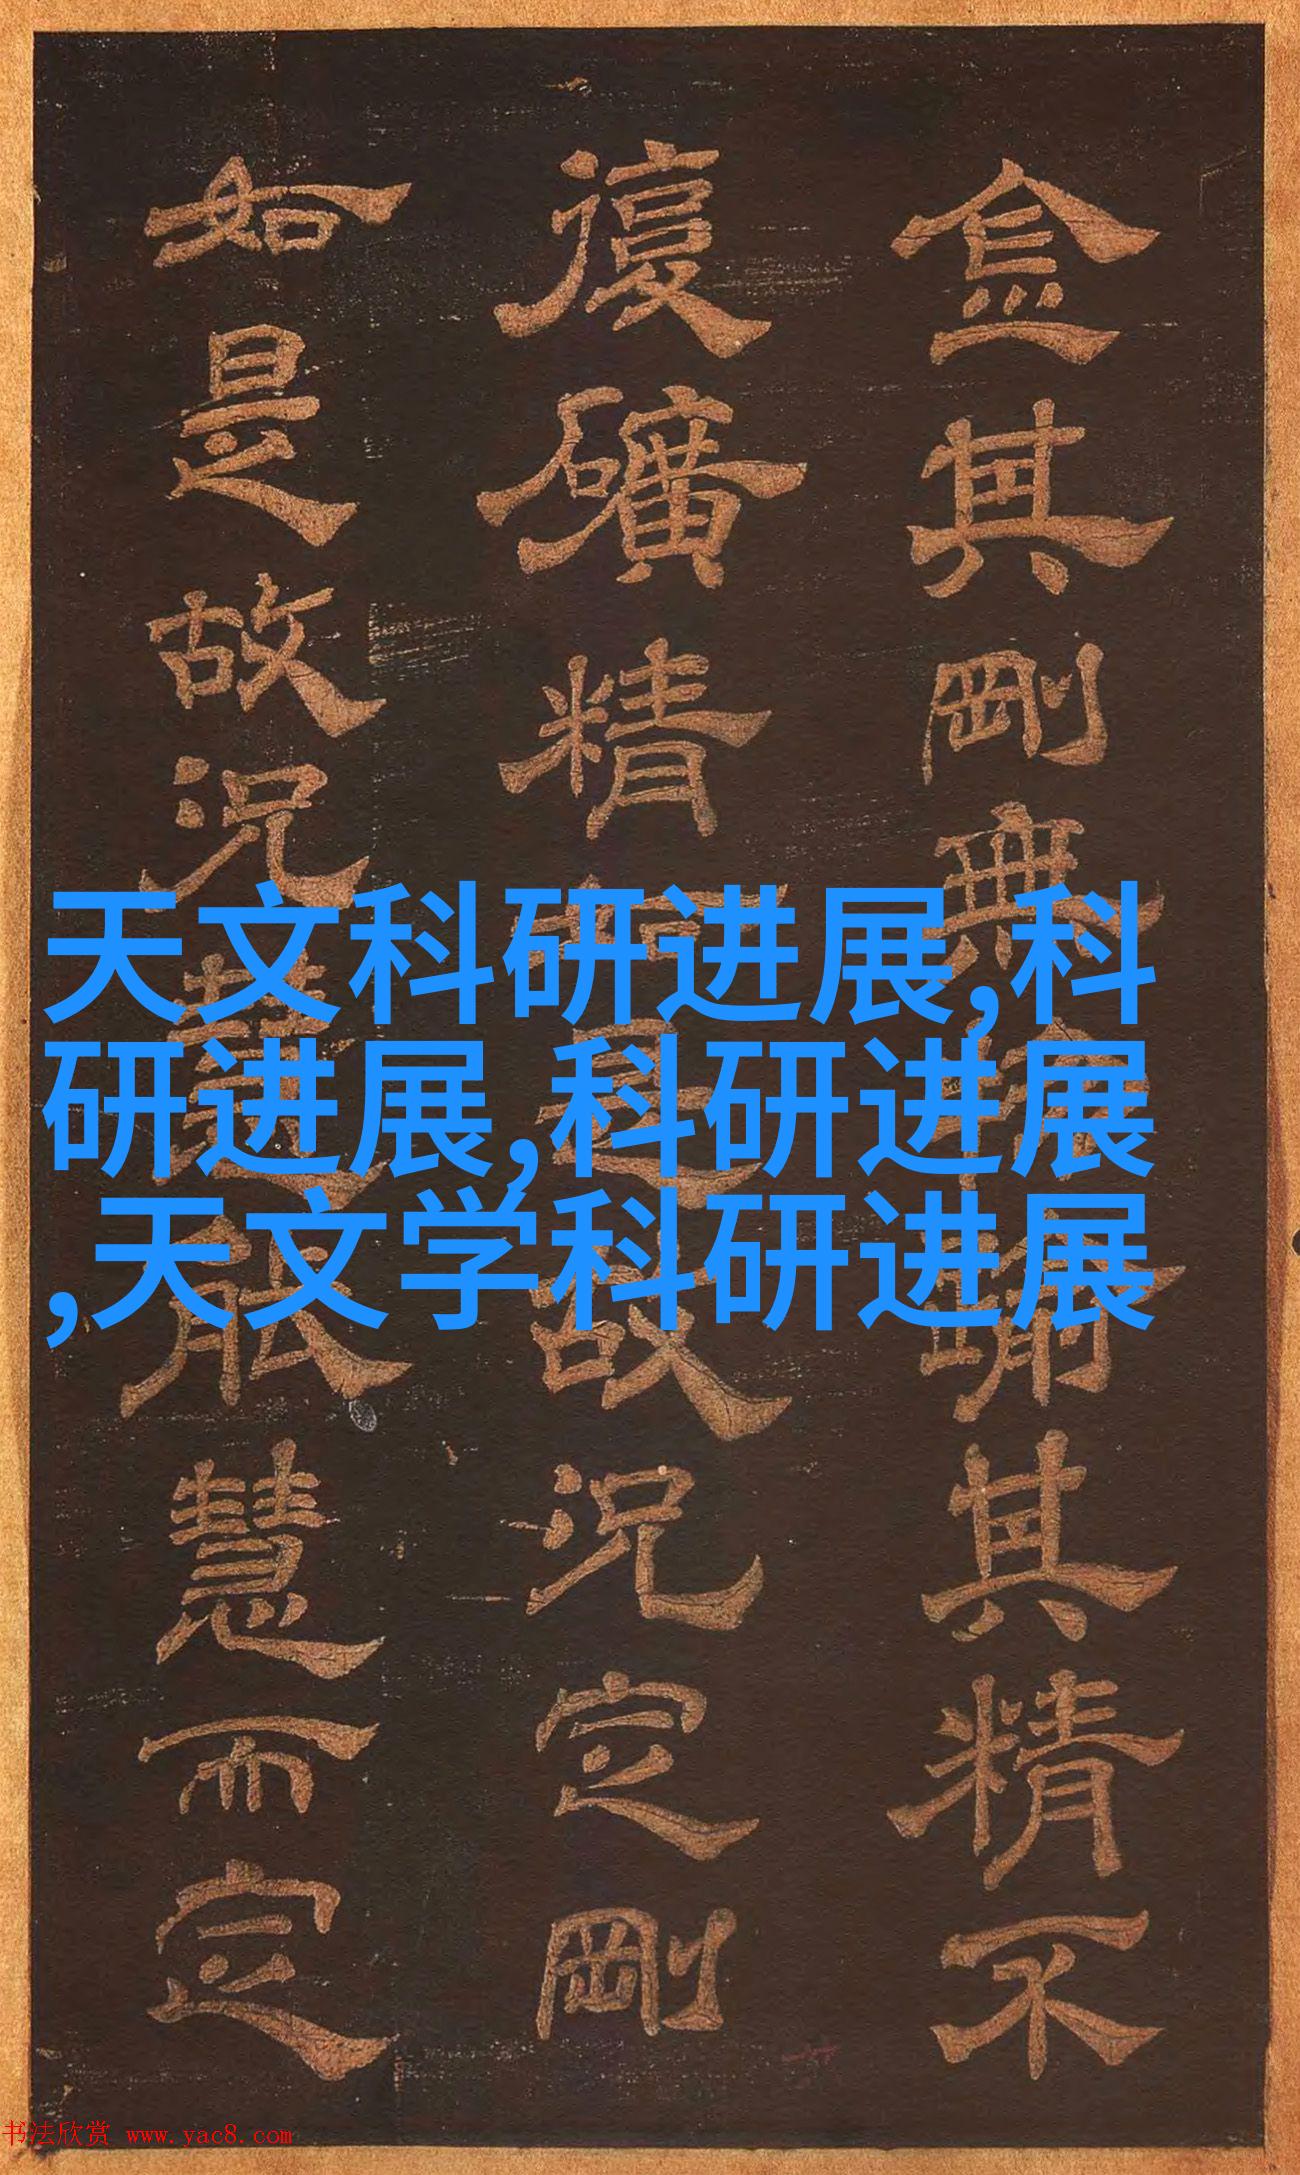 金其剛無踰其精不
復礦精如是故況定剛
如是故況慧能慧而定
天文科研进展,科
研进展,科研进展
,天文学科研进展
书法欣赏 www.yac8.com